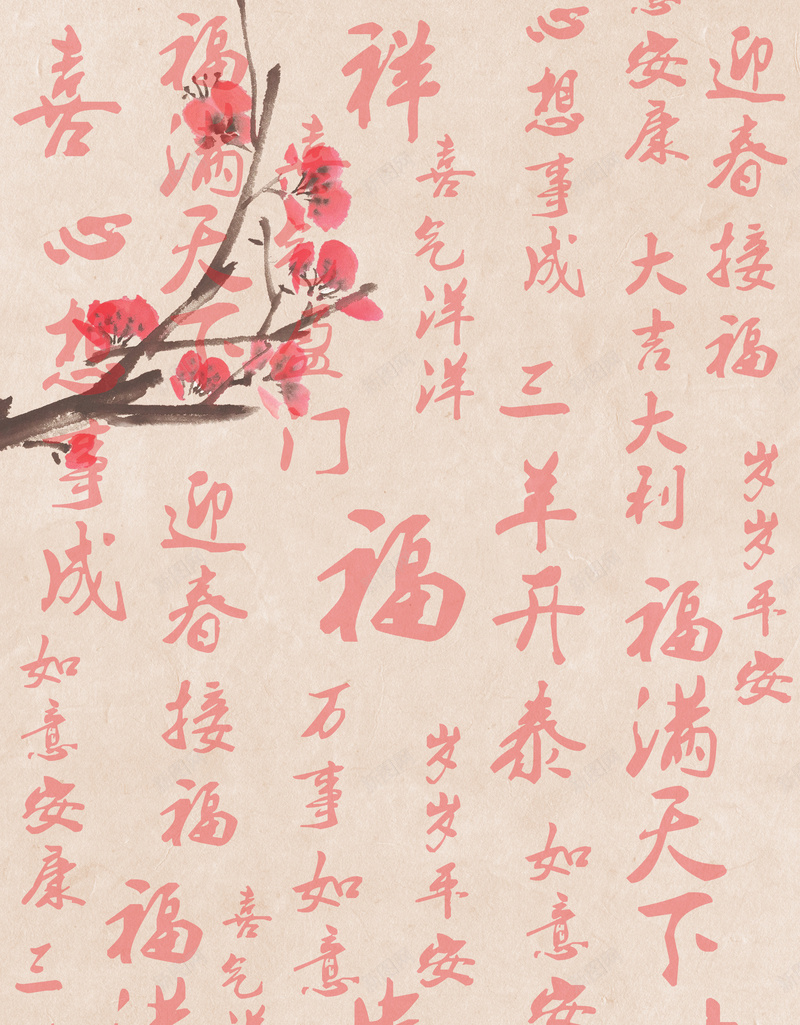 迎春接福
岁岁平安
安康
大吉大利
福满天下
心想事成
三羊开泰
如意安
祥
喜气洋洋
岁岁平安
喜气盈门
福
万事如意
福满天下
迎春接福
喜气
福满
喜
心想事成
如意安康
三